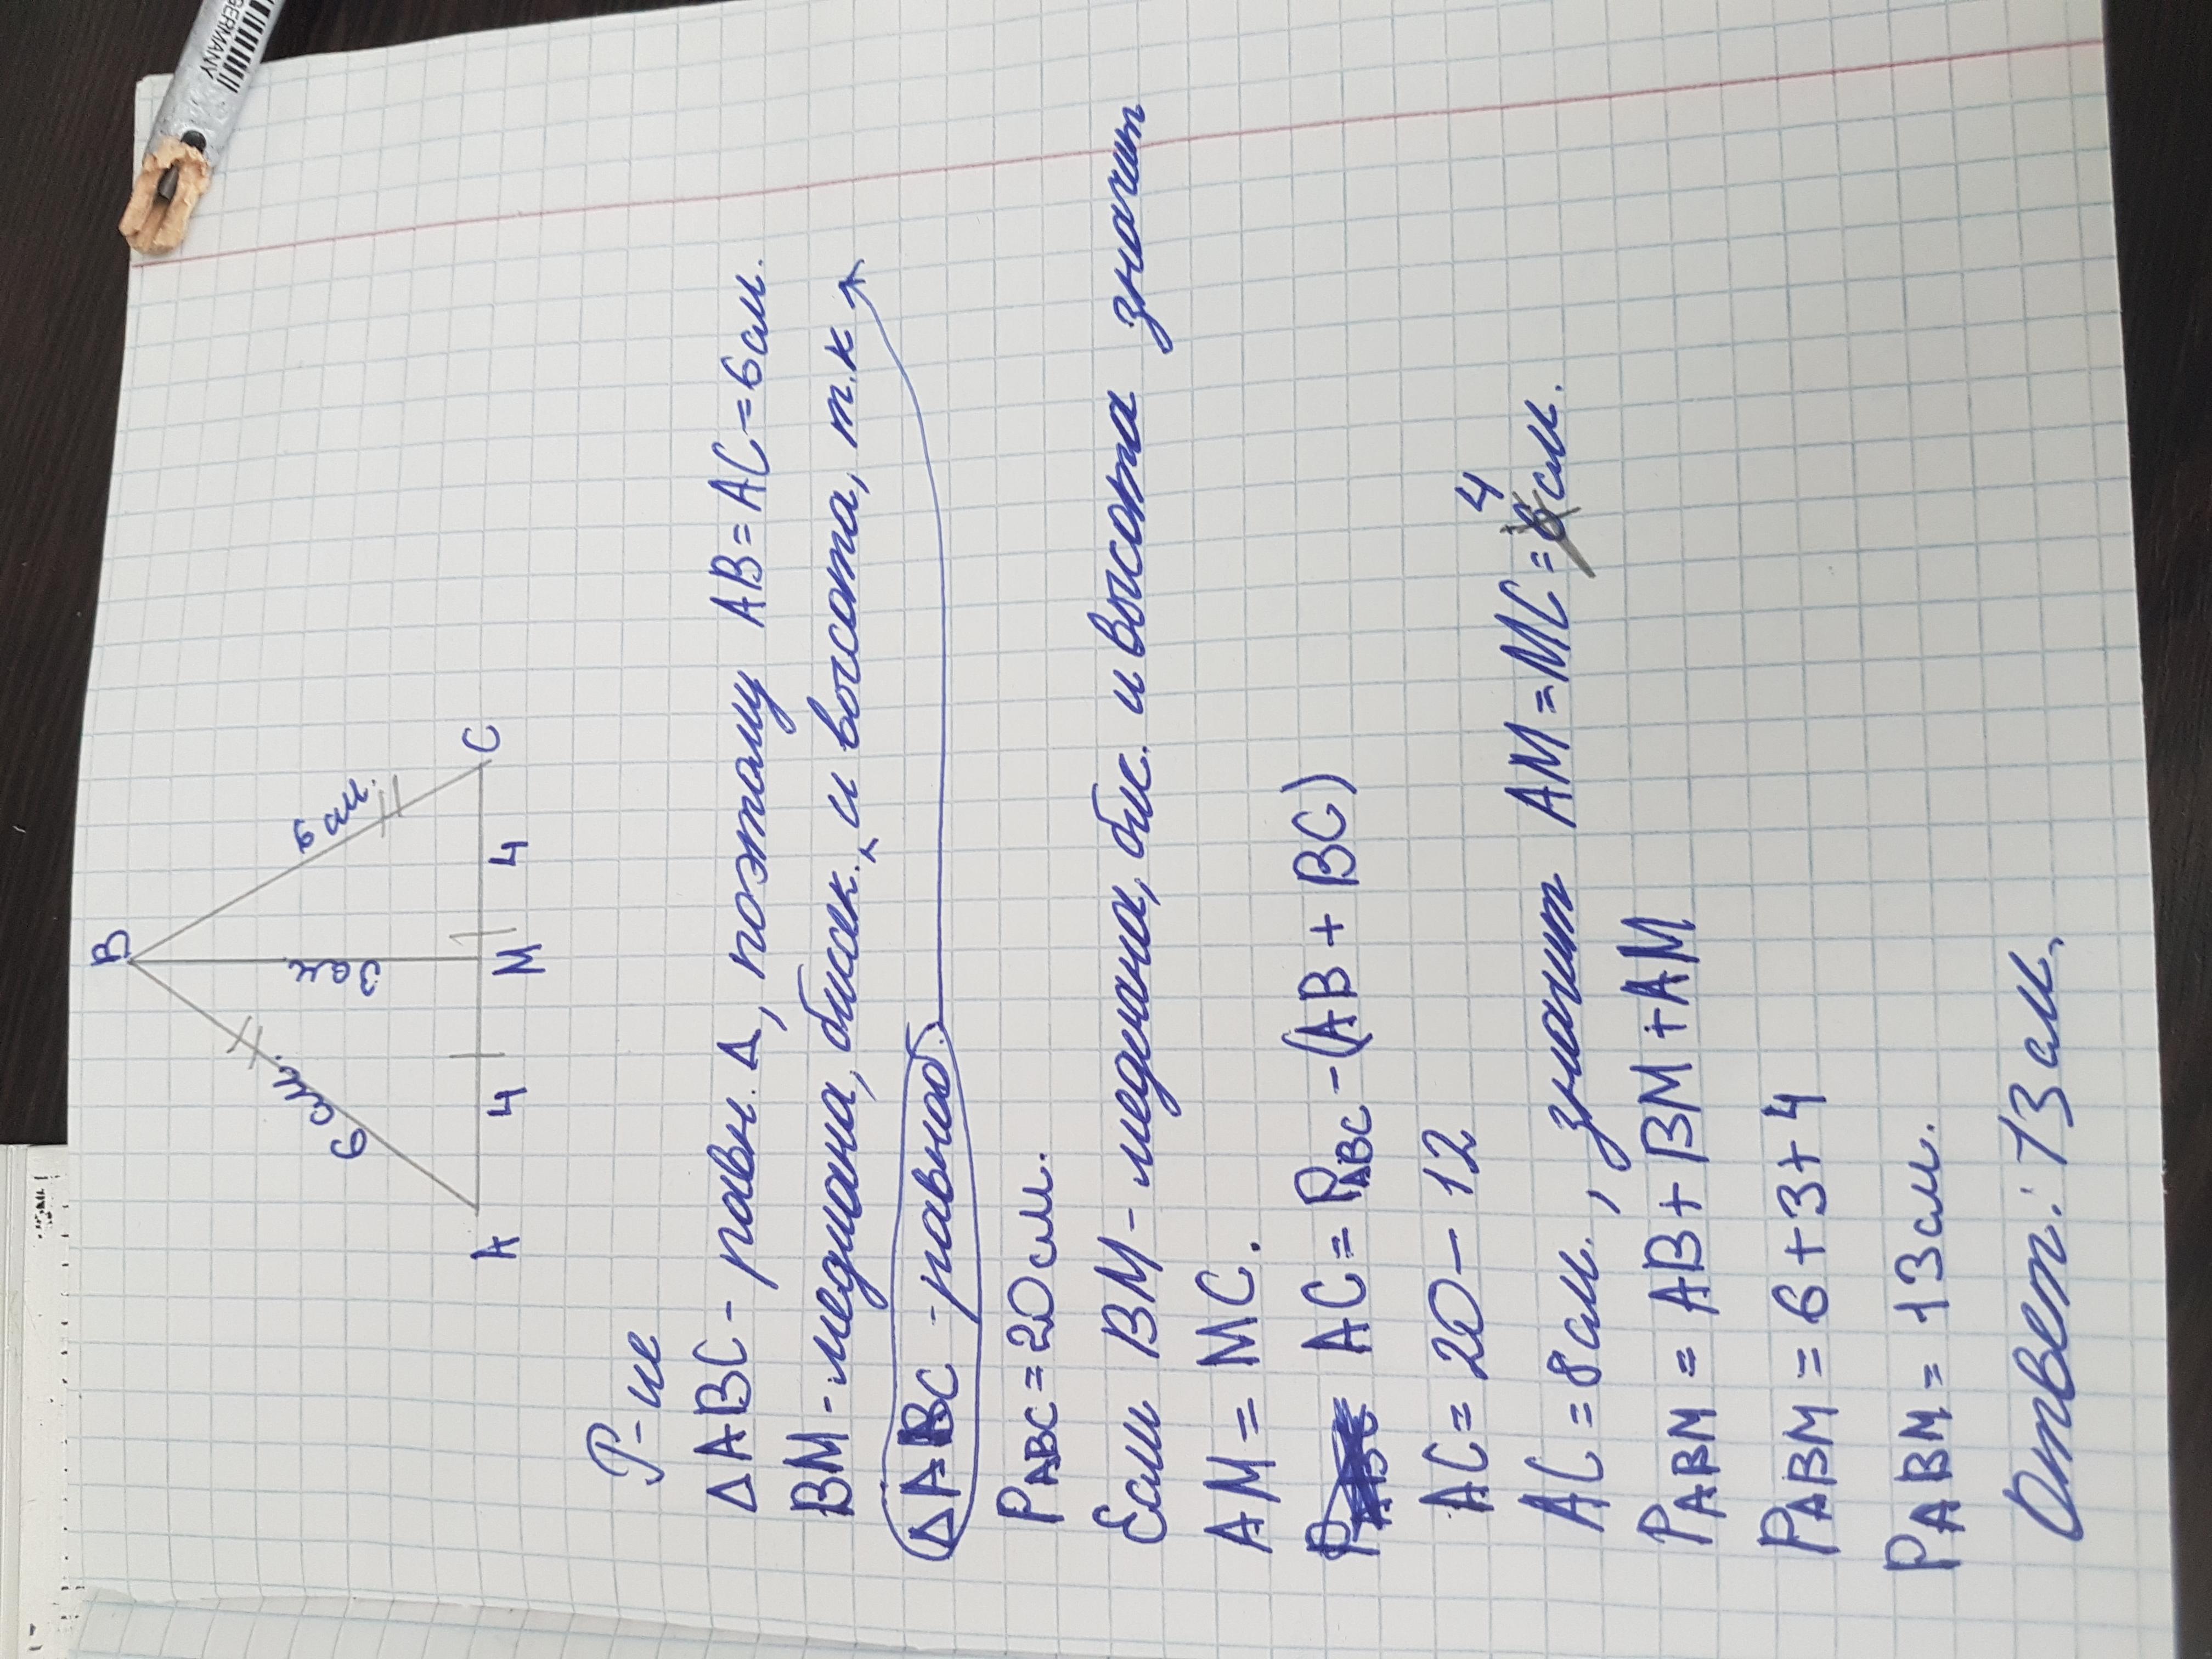 GERMANY
B
6 см.
6 см.
3 см
A
4
M
4
C
Р-ие
∆ABC - равн. ∆, поэтому AB = AC = 6 см.
BM - медиана, биссек. и высота, т.к
∆ABC - равноб.
PABC = 20 см.
Если BM - медиана, бис. и высота значит
AM = MC.
AC = PABC - (AB + BC)
AC = 20 - 12
AC = 8 см., значит AM = MC = 4 см.
PABM = AB + BM + AM
PABM = 6 + 3 + 4
PABM = 13 см.
Ответ: 13 см.